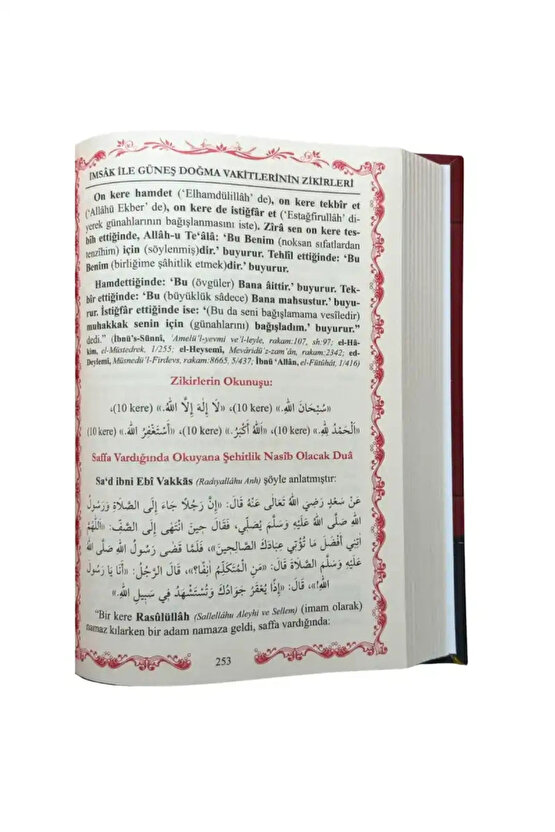 İMSÂK İLE GÜNEŞ DOĞMA VAKİTLERİNİN ZİKİRLERİ
On kere hamdet (‘Elhamdülillâh’ de), on kere tekbîr et
(‘Allâhü Ekber’ de), on kere de istiğfâr et (‘Estağfirullâh’ di-
yerek günahlarının bağışlanmasını iste). Zîrâ sen on kere tes-
bîh ettiğinde, Allâh-u Te‘âlâ: ‘Bu Benim (noksan sıfatlardan
tenzîhim) için (söylenmiş)dir.’ buyurur. Tehlîl ettiğinde: ‘Bu
Benim (birliğime şâhitlik etmek)dir.’ buyurur.
Hamdettiğinde: ‘Bu (övgüler) Bana âittir.’ buyurur. Tek-
bîr ettiğinde: ‘Bu (büyüklük sâdece) Bana mahsustur.’ buyu-
rur. İstiğfâr ettiğinde ise: ‘(Bu da seni bağışlamama vesîledir)
muhakkak senin için (günahlarını) bağışladım.’ buyurur.”
dedi.” (İbnü’s-Sünnî, ‘Amelü’l-yevmi ve’l-leyle, rakam:107, sh:97; el-Hâ-
kim, el-Müstedrek, 1/255; el-Heysemî, Mevâridü’z-zam’ân, rakam:2342; ed-
Deylemî, Müsnedü’l-Firdevs, rakam:8665, 5/437; İbnü ‘Allân, el-Fütûhât, 1/416)
Zikirlerin Okunuşu:
«سُبْحَانَ اللّٰهِ.» (10 kere)، «لَا إِلٰهَ إِلَّا اللّٰهُ.» (10 kere)،
«اَلْحَمْدُ لِلّٰهِ.» (10 kere)، «اَللّٰهُ أَكْبَرُ.» (10 kere)، «أَسْتَغْفِرُ اللّٰهَ.» (10 kere)
Saffa Vardığında Okuyana Şehitlik Nasîb Olacak Duâ
Sa‘d ibni Ebî Vakkâs (Radıyallâhu Anh) şöyle anlatmıştır:
عَنْ سَعْدٍ رَضِيَ اللّٰهُ تَعَالَى عَنْهُ قَالَ: «إِنَّ رَجُلًا جَاءَ إِلَى الصَّلَاةِ وَرَسُولُ
اللّٰهِ صَلَّى اللّٰهُ عَلَيْهِ وَسَلَّمَ يُصَلِّي، فَقَالَ حِينَ انْتَهَى إِلَى الصَّفِّ: «اَللّٰهُمَّ
آتِنِي أَفْضَلَ مَا تُؤْتِي عِبَادَكَ الصَّالِحِينَ»، فَلَمَّا قَضَى رَسُولُ اللّٰهِ صَلَّى اللّٰهُ
عَلَيْهِ وَسَلَّمَ الصَّلَاةَ قَالَ: «مَنِ الْمُتَكَلِّمُ آنِفًا؟»، قَالَ الرَّجُلُ: «أَنَا يَا رَسُولَ
اللّٰهِ!»، قَالَ: «إِذًا يُعْقَرُ جَوَادُكَ وَتُسْتَشْهَدُ فِي سَبِيلِ اللّٰهِ.»
“Bir kere Rasûlüllâh (Sallellâhu Aleyhi ve Sellem) (imam olarak)
namaz kılarken bir adam namaza geldi, saffa vardığında:
253